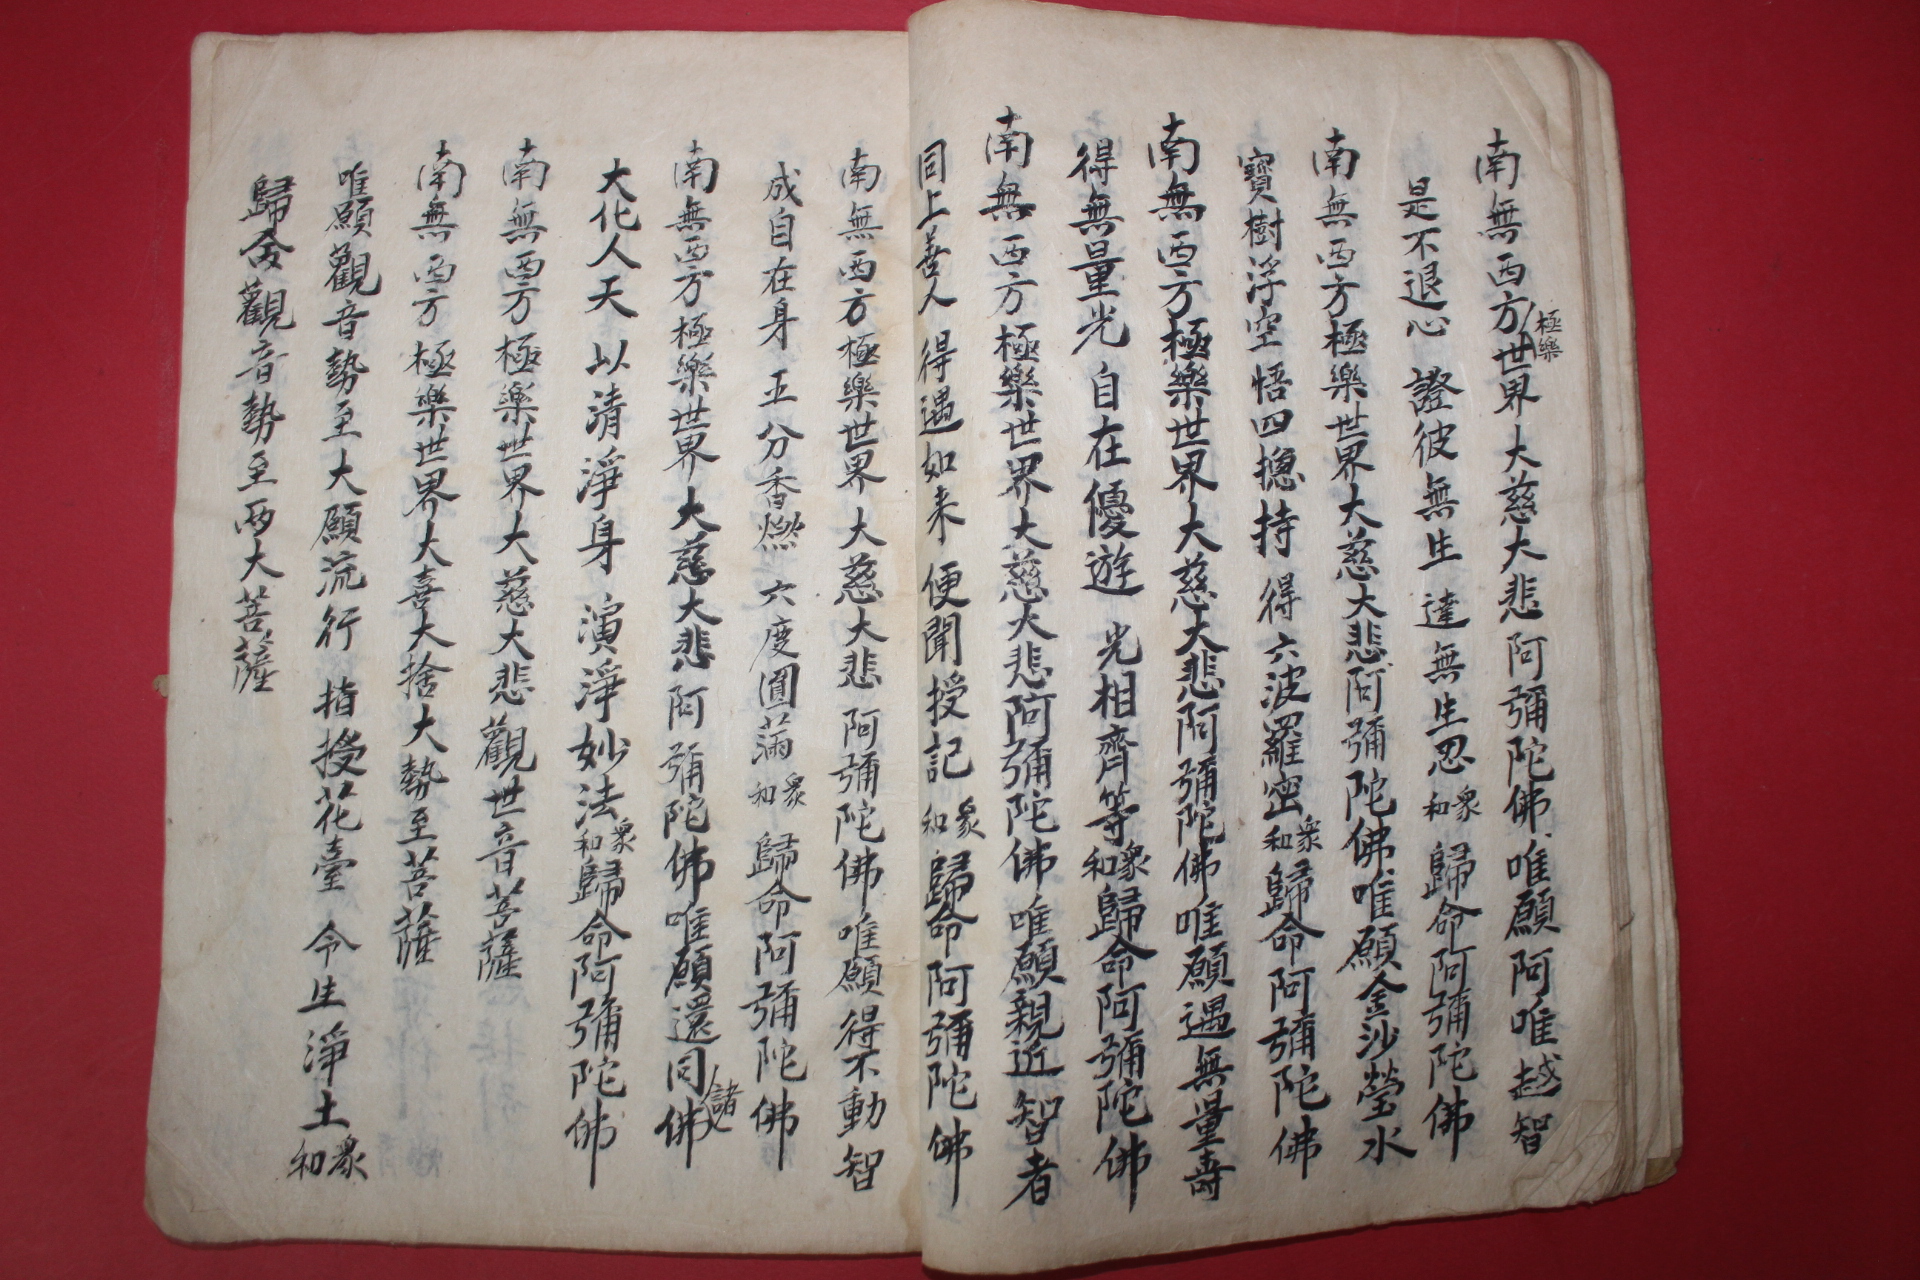 南無西方極樂世界大慈大悲阿彌陀佛唯願阿唯越智
是不退心 證彼無生 達無生忍 衆和 歸命阿彌陀佛
南無西方極樂世界大慈大悲阿彌陀佛唯願金沙瑩水
寶樹浮空 悟四摠持 得六波羅密 衆和 歸命阿彌陀佛
南無西方極樂世界大慈大悲阿彌陀佛唯願遇無量壽
得無量光 自在優遊 光相齊等 衆和 歸命阿彌陀佛
南無西方極樂世界大慈大悲阿彌陀佛唯願親近智者
同上善人 得遇如来 便聞授記 衆和 歸命阿彌陀佛
南無西方極樂世界大慈大悲阿彌陀佛唯願得不動智
成自在身 五分香燃 六度圓滿 衆和 歸命阿彌陀佛
南無西方極樂世界大慈大悲阿彌陀佛唯願還同諸佛
大化人天 以清淨身 演淨妙法 衆和 歸命阿彌陀佛
南無西方極樂世界大慈大悲觀世音菩薩
南無西方極樂世界大喜大捨大勢至菩薩
唯願觀音勢至大願流行 指授花臺 令生淨土 衆和
歸命觀音勢至兩大菩薩